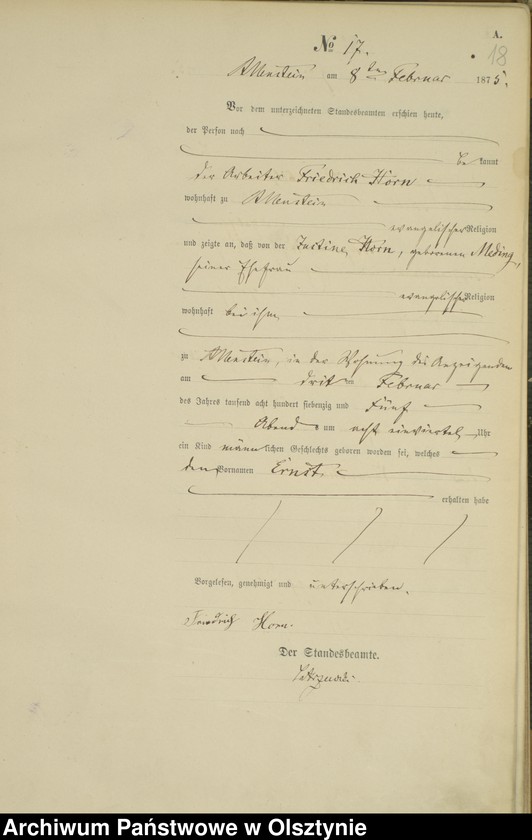 A.
18
No 17.
Allenstein am 8ten Februar 1875.
Vor dem unterzeichneten Standesbeamten erschien heute,
der Person nach
be kannt
der Arbeiter Friedrich Horn
wohnhaft zu Allenstein
evangelischer Religion
und zeigte an, daß von der Justine Horn, geborenen Meding,
seiner Ehefrau
evangelischer Religion
wohnhaft bei ihm
zu Allenstein, in der Wohnung des Anzeigenden
am dritten Februar
des Jahres tausend acht hundert siebenzig und Fünf
Abends um acht einviertel Uhr
ein Kind männlichen Geschlechts geboren worden sei, welches
den Vornamen Ernst
erhalten habe
Vorgelesen, genehmigt und unterschrieben.
Friedrich Horn.
Der Standesbeamte.
Archiwum Państwowe w Olsztynie